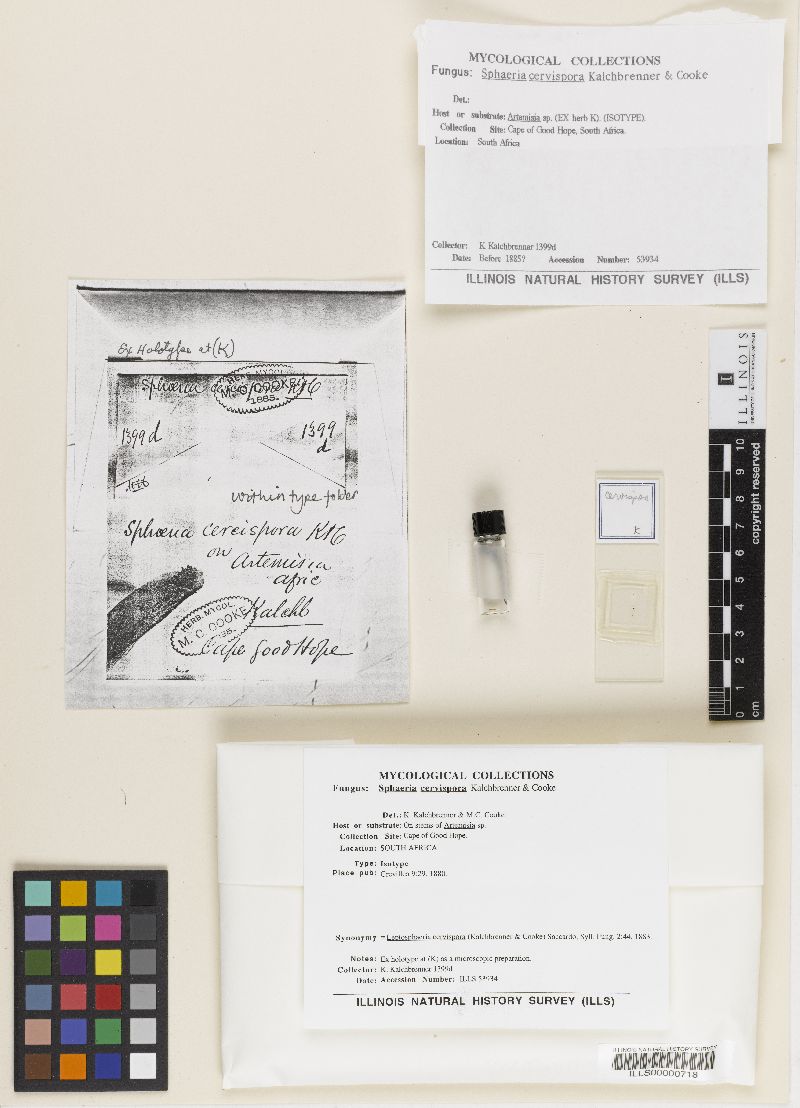 MYCOLOGICAL COLLECTIONS
Fungus: Sphaeria cervispora Kalchbrenner & Cooke
Det.:
Host or substrate: Artemisia sp. (EX herb K). (ISOTYPE).
Collection Site: Cape of Good Hope, South Africa.
Location: South Africa
Collector: K Kalchbrenner 1399d
Date: Before 1885? Accession Number: 53934
ILLINOIS NATURAL HISTORY SURVEY (ILLS)
Ex Holotype at (K)
Sphæria K&C
HERB. MYCOL.
M. C. COOKE
1885.
1399 d
1399
d
within type folder
Sphæria cervispora K&C
on Artemisia
afric
Kalchb
HERB. MYCOL.
M. C. COOKE
Cape Good Hope
cervispora
K
I ILLINOIS
0 1 2 3 4 5 6 7 8 9 10
cm
copyright reserved
MYCOLOGICAL COLLECTIONS
Fungus: Sphaeria cervispora Kalchbrenner & Cooke
Det.: K. Kalchbrenner & M.C. Cooke
Host or substrate: On stems of Artemisia sp.
Collection Site: Cape of Good Hope.
Location: SOUTH AFRICA
Type: Isotype
Place pub: Grevillea 9:29. 1880.
Synonymy = Leptosphaeria cervispora (Kalchbrenner & Cooke) Saccardo, Syll. Fung. 2:44. 1883
Notes: Ex holotype at (K) as a microscopic preparation.
Collector: K. Kalchbrenner 1399d
Date: Accession Number: ILLS 53934
ILLINOIS NATURAL HISTORY SURVEY (ILLS)
ILLINOIS NATURAL HISTORY SURVEY
ILLS00000718